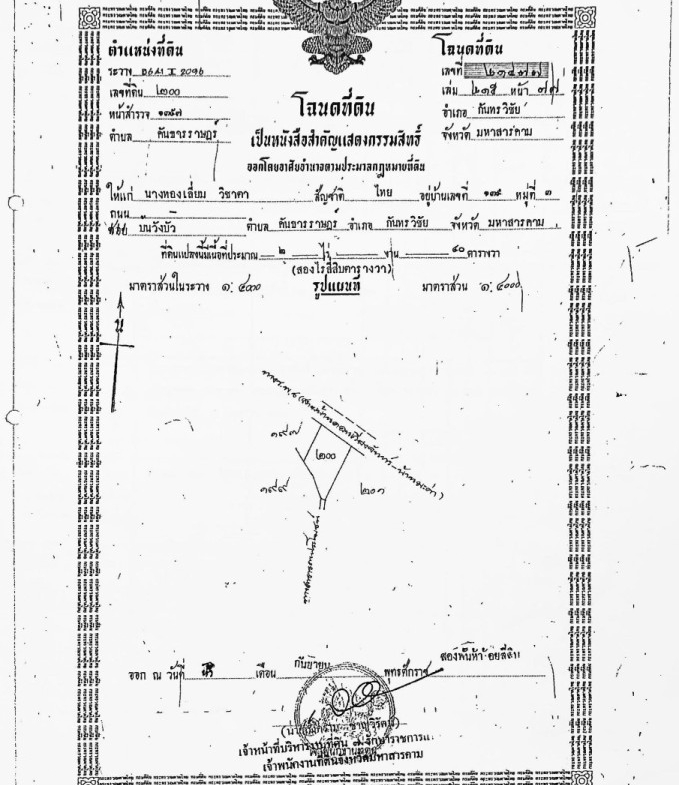 ตำแหน่งที่ดิน
ระวาง
เลขที่ดิน ๒๐๐
หน้าสำรวจ ๑๓๙๗
ตำบล คันธารราษฎร์
โฉนดที่ดิน
เลขที่ ๒๑๔๓๗
เล่ม ๒๑๕ หน้า ๓๗
อำเภอ กันทรวิชัย
จังหวัด มหาสารคาม
โฉนดที่ดิน
เป็นหนังสือสำคัญแสดงกรรมสิทธิ์
ออกโดยอาศัยอำนาจตามประมวลกฎหมายที่ดิน
ให้แก่ นางทองเลี่ยม วิชาคา สัญชาติ ไทย อยู่บ้านเลขที่ ๑๓๙ หมู่ที่ ๓
ถนน
ซอย บ้นวังบัว ตำบล คันธารราษฎร์ อำเภอ กันทรวิชัย จังหวัด มหาสารคาม
ที่ดินแปลงนี้มีเนื้อที่ประมาณ ๒ ไร่ งาน ๔๐ ตารางวา
(สองไร่สี่สิบตารางวา)
มาตราส่วนในระวาง ๑:๔๐๐๐ รูปแผนที่ มาตราส่วน ๑:๔๐๐๐
น
๑๙๗
๒๐๐
๑๙๙
๒๐๑
ทางสาธารณประโยชน์
ออก ณ วันที่ เดือน กันยายน พุทธศักราช
เจ้าหน้าที่บริหารงานที่ดิน ๗ รักษาราชการแ
เจ้าพนักงานที่ดินจังหวัดมหาสารคาม